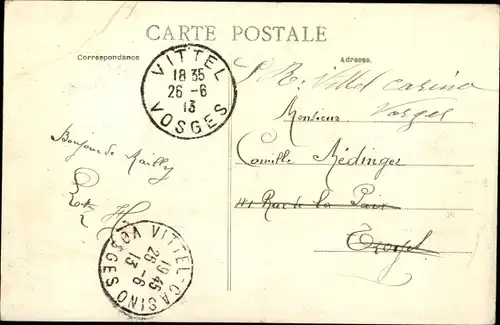 CARTE POSTALE
Correspondance
Adresse
VITTEL
18 35
26 - 6
13
VOSGES
Vittel Casino
Vosges
Monsieur
Camille Médinger
41 Rue de la Paix
Bonjour de Mailly
VITTEL-CASINO
19 45
26 - 6
13
VOSGES